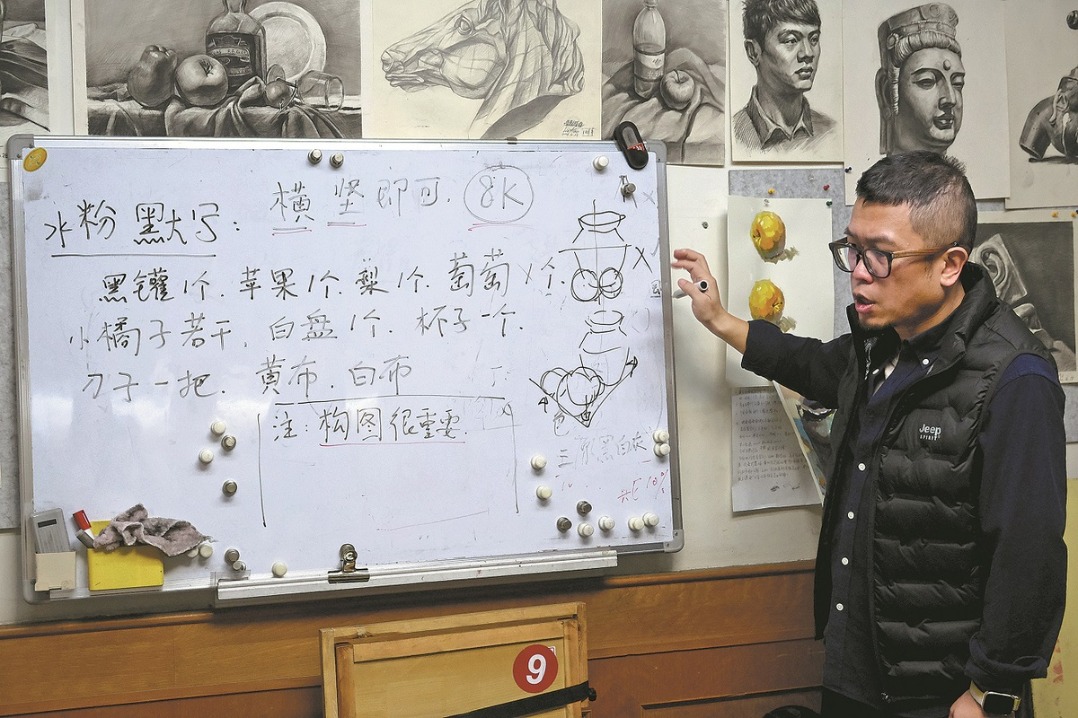 横 竖即可. 8K
水粉 默写:
黑罐1个. 苹果1个. 梨1个. 葡萄X个.
小橘子若干, 白盘1个. 杯子一个.
刀子一把. 黄布. 白布
注: 构图很重要.
黑白灰
Jeep
SPIRIT
9